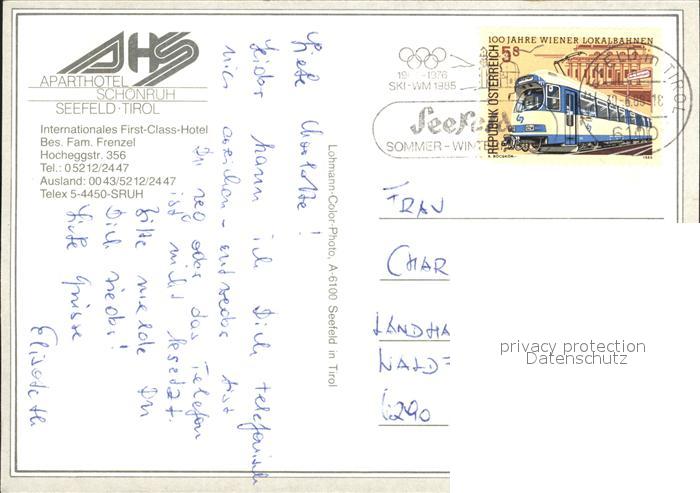 AHS
APARTHOTEL
SCHÖNRUH
SEEFELD · TIROL
Internationales First-Class-Hotel
Bes. Fam. Frenzel
Hocheggstr. 356
Tel.: 05212/2447
Ausland: 0043/5212/2447
Telex 5-4450-SRUH
Liebe Charlotte!
Leider kann ich Dich telefonisch
nicht erreichen - entweder bist
Du weg oder das Telefon
ist nicht besetzt.
Bitte melde Du
Dich wieder!
Liebe Grüsse
Elisabeth
Lohmann-Color-Photo, A-6100 Seefeld in Tirol
1976
SKI-WM 1985
Seefeld
SOMMER - WINTER
IN TIROL
6100
100 JAHRE WIENER LOKALBAHNEN
5s
REPUBLIK ÖSTERREICH
FRAU
CHAR
LANDHA
WALD
6290
privacy protection
Datenschutz